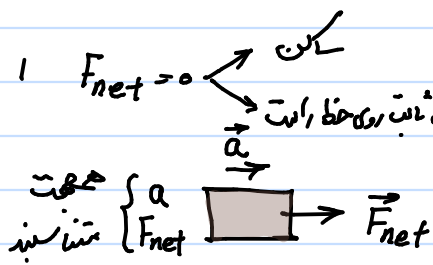 1 F_net = 0 ساکن
ثابت روی خط راست
a
هم جهت a
متناسبند F_net F_net